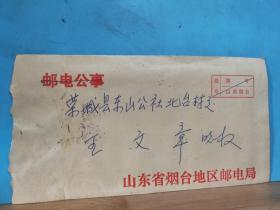 邮电公事
荣城县东山公社北台村交
王文章收
山东省烟台地区邮电局